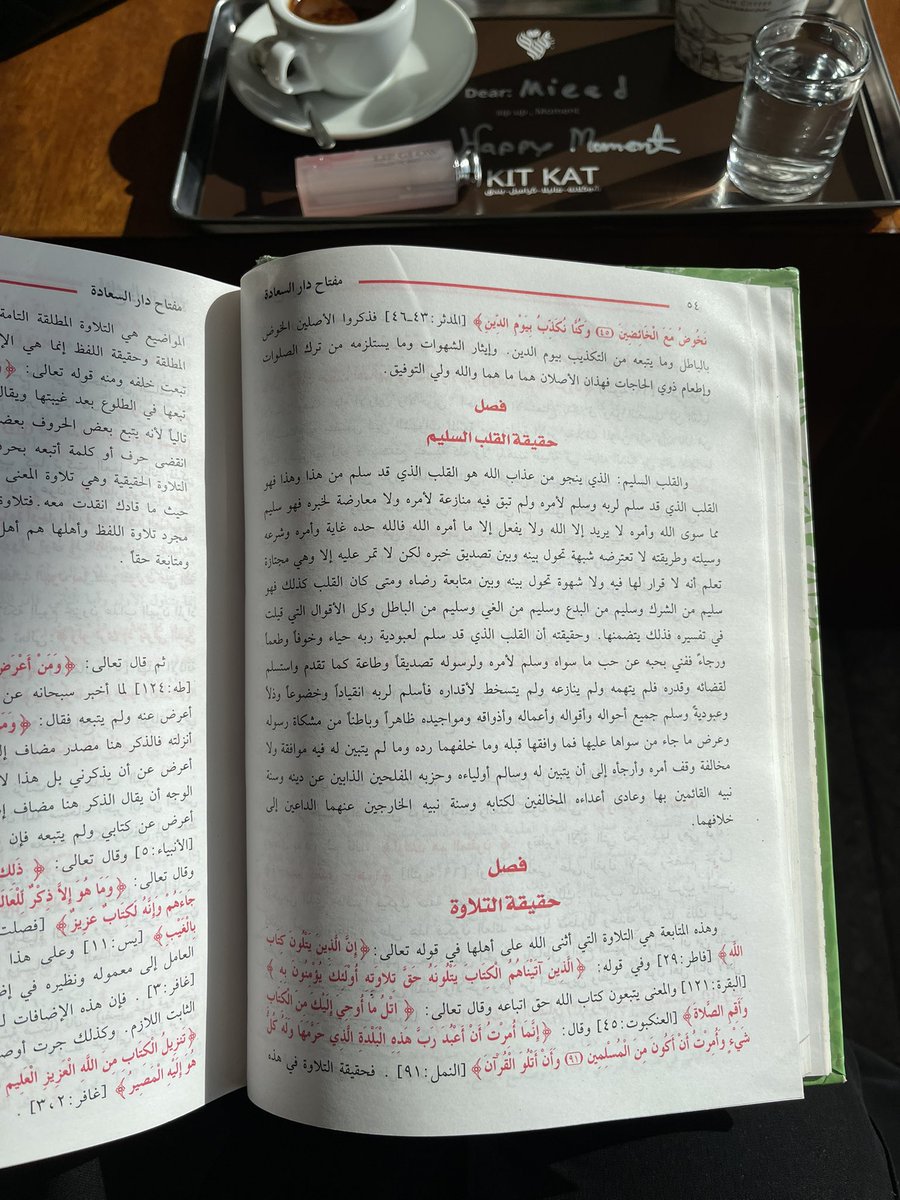 Dear: Mieed
Happy Mument
KIT KAT
مفتاح دار السعادة
٥٤
نَخُوضُ مَعَ الْخَائِضِينَ (٤٥) وَكُنَّا نُكَذِّبُ بِيَوْمِ الدِّينِ﴾ [المدثر:٤٣-٤٦] فذكروا الأصلين الخوض
بالباطل وما يتبعه من التكذيب بيوم الدين. وإيثار الشهوات وما يستلزمه من ترك الصلوات
وإطعام ذوي الحاجات فهذان الأصلان هما ما هما والله ولي التوفيق.
فصل
حقيقة القلب السليم
والقلب السليم: الذي ينجو من عذاب الله هو القلب الذي قد سلم من هذا وهذا فهو
القلب الذي قد سلم لربه وسلم لأمره ولم تبق فيه منازعة لأمره ولا معارضة لخبره فهو سليم
مما سوى الله وأمره لا يريد إلا الله ولا يفعل إلا ما أمره الله فالله حده غاية وأمره وشرعه
وسيلته وطريقته لا تعترضه شبهة تحول بينه وبين تصديق خبره لكن لا تمر عليه إلا وهي مجتازة
تعلم أنه لا قرار لها فيه ولا شهوة تحول بينه وبين متابعة رضاه ومتى كان القلب كذلك فهو
سليم من الشرك وسليم من البدع وسليم من الغي وسليم من الباطل وكل الأقوال التي قيلت
في تفسيره فذلك يتضمنها. وحقيقته أن القلب الذي قد سلم لعبودية ربه حياء وخوفاً وطعماً
ورجاءً ففني بحبه عن حب ما سواه وسلم لأمره ولرسوله تصديقاً وطاعة كما تقدم واستسلم
لقضائه وقدره فلم يتهمه ولم ينازعه ولم يتسخط لأقداره فأسلم لربه انقياداً وخضوعاً وذلاً
وعبوديةً وسلم جميع أحواله وأقواله وأعماله وأذواقه ومواجيده ظاهراً وباطناً من مشكاة رسوله
وعرض ما جاء من سواها عليها فما وافقها قبله وما خلفهما رده وما لم يتبين له فيه موافقة ولا
مخالفة وقف أمره وأرجأه إلى أن يتبين له وسالم أولياءه وحزبه المفلحين الذابين عن دينه وسنة
نبيه القائمين بها وعادى أعداءه المخالفين لكتابه وسنة نبيه الخارجين عنهما الداعين إلى
خلافهما.
فصل
حقيقة التلاوة
وهذه المتابعة هي التلاوة التي أثنى الله على أهلها في قوله تعالى: ﴿إِنَّ الَّذِينَ يَتْلُونَ كِتَابَ
اللَّه﴾ [فاطر:٢٩] وفي قوله: ﴿الَّذِينَ آتَيْنَاهُمُ الْكِتَابَ يَتْلُونَهُ حَقَّ تِلَاوَتِهِ أُولَئِكَ يُؤْمِنُونَ بِهِ﴾
[البقرة:١٢١] والمعنى يتبعون كتاب الله حق اتباعه وقال تعالى: ﴿اتْلُ مَا أُوحِيَ إِلَيْكَ مِنَ الْكِتَابِ
وَأَقِمِ الصَّلَاةَ﴾ [العنكبوت:٤٥] وقال: ﴿إِنَّمَا أُمِرْتُ أَنْ أَعْبُدَ رَبَّ هَذِهِ الْبَلْدَةِ الَّذِي حَرَّمَهَا وَلَهُ كُلُّ
شَيْءٍ وَأُمِرْتُ أَنْ أَكُونَ مِنَ الْمُسْلِمِينَ (٩١) وَأَنْ أَتْلُوَ الْقُرْآنَ﴾ [النمل:٩١] . فحقيقة التلاوة في هذه
مفتاح دار السعادة
المواضيع هي التلاوة المطلقة التامة
المطلقة وحقيقة اللفظ إنما هي
تبعت خلفه ومنه قوله تعالى:
تبعها في الطلوع بعد غيبتها ويقال
تالياً لأنه يتبع بعض الحروف
انقضى حرف أو كلمة أتبعه
التلاوة الحقيقية وهي تلاوة المعنى
حيث ما قادك انقدت معه.
مجرد تلاوة اللفظ وأهلها هم
ومتابعة حقاً .
ثم قال تعالى: ﴿وَمَنْ أَعْرَضَ
[طه:١٢٤] لما أخبر سبحانه عن
أعرض عنه ولم يتبعه فقال:
أنزلته فالذكر هنا مصدر مضاف
أعرض عن أن يذكرني بل هذا
الوجه أن يقال الذكر هنا مضاف
أعرض عن كتابي ولم يتبعه فإن
[الأنبياء:٥] وقال تعالى: ﴿ذَلِكَ
وقال تعالى: ﴿وَمَا هُوَ إِلَّا ذِكْرٌ
جَاءَهُمْ وَإِنَّهُ لَكِتَابٌ عَزِيزٌ﴾
بِالْغَيْبِ﴾ [يس:١١] وعلى هذا
العامل إلى معموله ونظيره في
[غافر:٣] . فإن هذه الإضافات
الثابت اللازم. وكذلك جرت
﴿تَنْزِيلُ الْكِتَابِ مِنَ اللَّهِ الْعَزِيزِ الْعَلِيمِ
هُوَ إِلَيْهِ الْمَصِيرُ﴾ [غافر:٢،٣] .